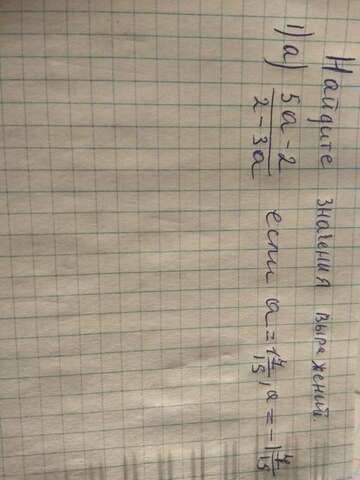 Найдите значения выражений.
1) а) 5а - 2 / 2 - 3а если а = 1 7/15, а = -1 4/15